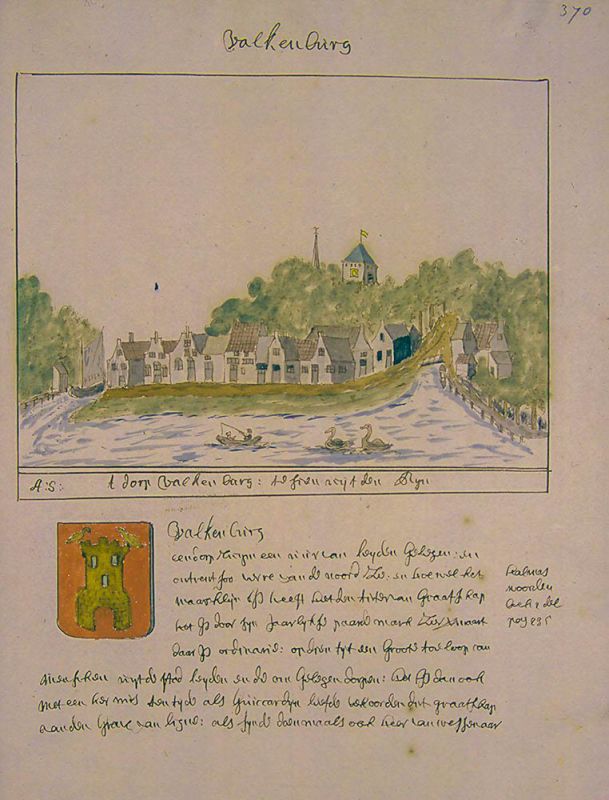 370
Valkenburg
A:S: t dorp Valkenburg: te sien uijt den Rijn
Valkenburg
een dorp een uijr van leyden gelegen: en
ontrent soo verre van de noord Zee: en hoe wel het
maar klijn is heeft het den titel van Graafschap
het is door sijn Jaarlijkse paarde markt Zeer
daar is ordinaris: op dien tijt een Groote toe loop van
menschen uijt de stad leyden en de om Gelegen dorpen: het is dan ook
met een ker mis ten tyde als Guiccardyn leefde behoorden dit graafschap
aan den Grave van ligne: als sijnde doenmaals ook heer van wassenaar